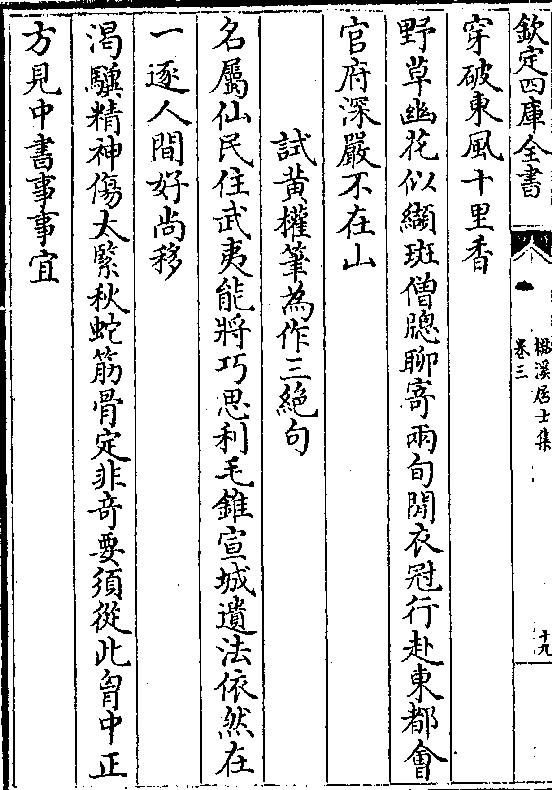 欽定四庫全書
卷三
溪居士集
十九
穿破東風十里香
野草幽花似纈斑僧牕聊寄兩旬閒衣冠行赴東都會
官府深嚴不在山
試黄權筆為作三絶句
名屬仙民住武夷能將巧思利毛錐宣城遺法依然在
一逐人間好尚移
渴驥精神傷太緊秋蛇筋骨定非奇要須從此胷中正
方見中書事事宜